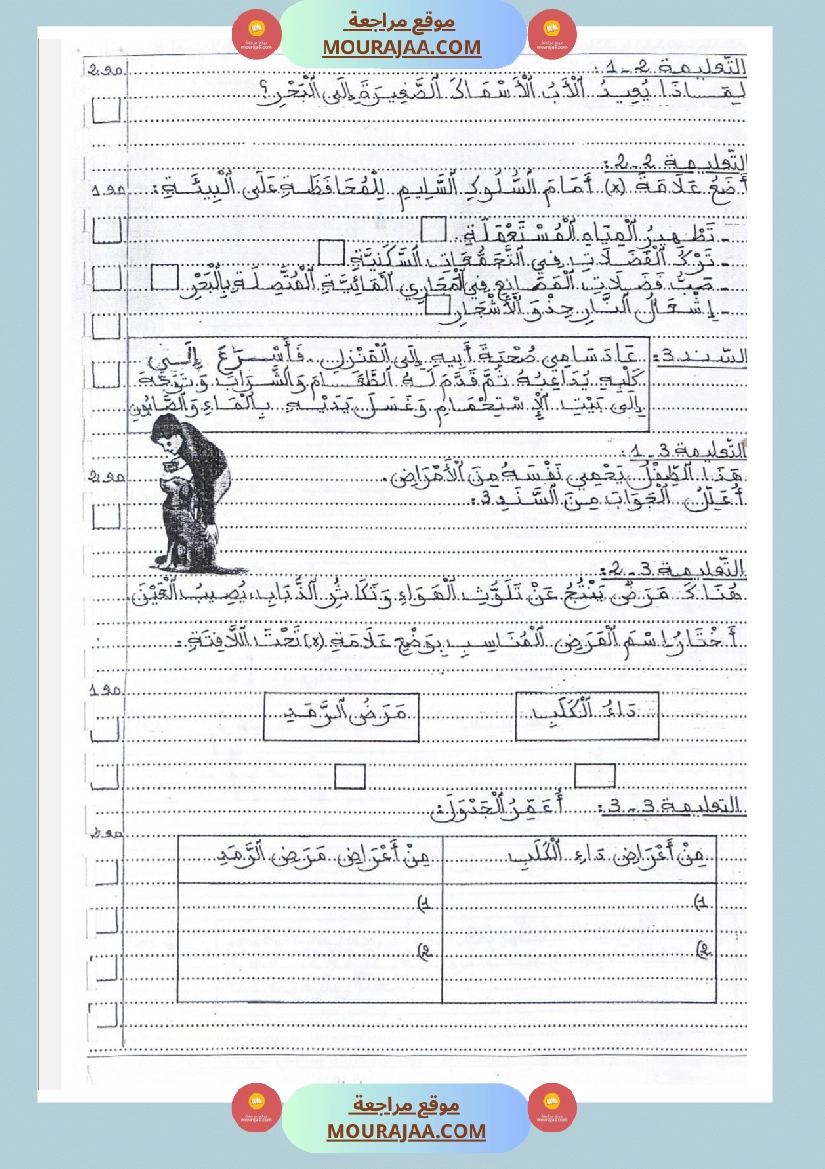 موقع مراجعة
MOURAJAA.COM
التّعليمة 2-1:
لِمَاذَا يُعِيدُ الْأَبُ الْأَسْمَاكَ الصَّغِيرَةَ إِلَى الْبَحْرِ؟
2.90
التّعليمة 2-2:
أَضَعُ عَلَامَةَ (x) أَمَامَ السُّلُوكِ السَّلِيمِ لِلْمُحَافَظَةِ عَلَى الْبِيئَةِ:
1.90
- تَطْهِيرُ الْمِيَاهِ الْمُسْتَعْمَلَةِ.
- تَرْكُ الْفَضَلَاتِ فِي التَّجَمُّعَاتِ السَّكَنِيَّةِ
- صَبُّ فَضَلَاتِ الْمَصَانِعِ فِي الْمَجَارِي الْمَائِيَّةِ الْمُتَّصِلَةِ بِالْبَحْرِ
- إِشْعَالُ النَّارِ حِذْوَ الْأَشْجَارِ
السّند 3:
عَادَ سَامِي صُحْبَةَ أَبِيهِ إِلَى الْمَنْزِلِ. فَأَسْرَعَ إِلَى
كَلْبِهِ يُدَاعِبُهُ ثُمَّ قَدَّمَ لَهُ الطَّعَامَ وَالشَّرَابَ وَتَوَجَّهَ
إِلَى بَيْتِ الْإِسْتِحْمَامِ وَغَسَلَ يَدَيْهِ بِالْمَاءِ وَالصَّابُونِ
التّعليمة 3-1:
هَذَا الطِّفْلُ يَحْمِي نَفْسَهُ مِنَ الْأَمْرَاضِ.
2.90
أُعَلِّلُ الْجَوَابَ مِنَ السَّنَدِ 3:
التّعليمة 3-2:
هُنَاكَ مَرَضٌ يَنْتُجُ عَنْ تَلَوُّثِ الْهَوَاءِ وَتَكَاثُرِ الذُّبَابِ، يُصِيبُ الْعَيْنَ
أَخْتَارُ اِسْمَ الْمَرَضِ الْمُنَاسِبِ بِوَضْعِ عَلَامَةِ (x) تَحْتَ اللَّافِتَةِ:
1.90
دَاءُ الْكَلَبِ
مَرَضُ الرَّمَدِ
التعليمة 3-3: أُعَمِّرُ الْجَدْوَلَ:
2.90
مِنْ أَعْرَاضِ دَاءِ الْكَلَبِ
مِنْ أَعْرَاضِ مَرَضِ الرَّمَدِ
1)
1)
2)
2)
موقع مراجعة
MOURAJAA.COM